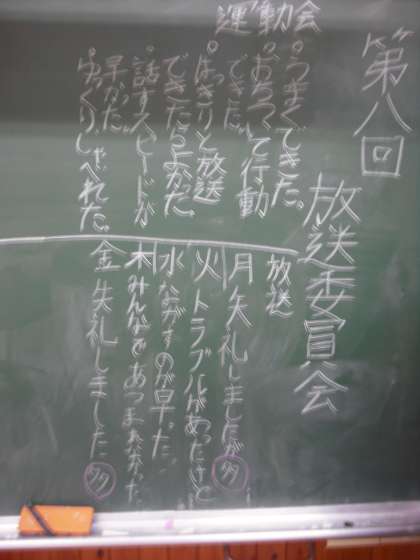 第八回
放送委員会
運動会
。うまくできた。
。おちついて行動
できた。
。はっきりと放送
できたらよかった。
。話すスピードが
早かった。
。ゆっくりしゃべれた。
放送
月 失礼しましたが
火 トラブルがあったけど
水 ながすのが早った。
木 みんなであつまれなかった
金 失礼しました